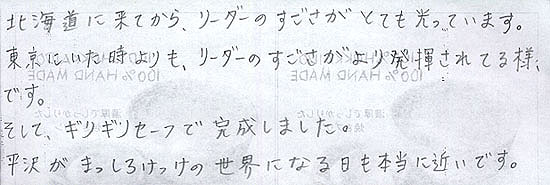 北海道に来てから、リーダーのすごさがとても光っています。
東京にいた時よりも、リーダーのすごさがより発揮されてる様、
です。
そして、ギリギリセーフで完成しました。
平沢がまっしろけっけの世界になる日も本当に近いです。
100% HAND MADE
100% HAND MADE